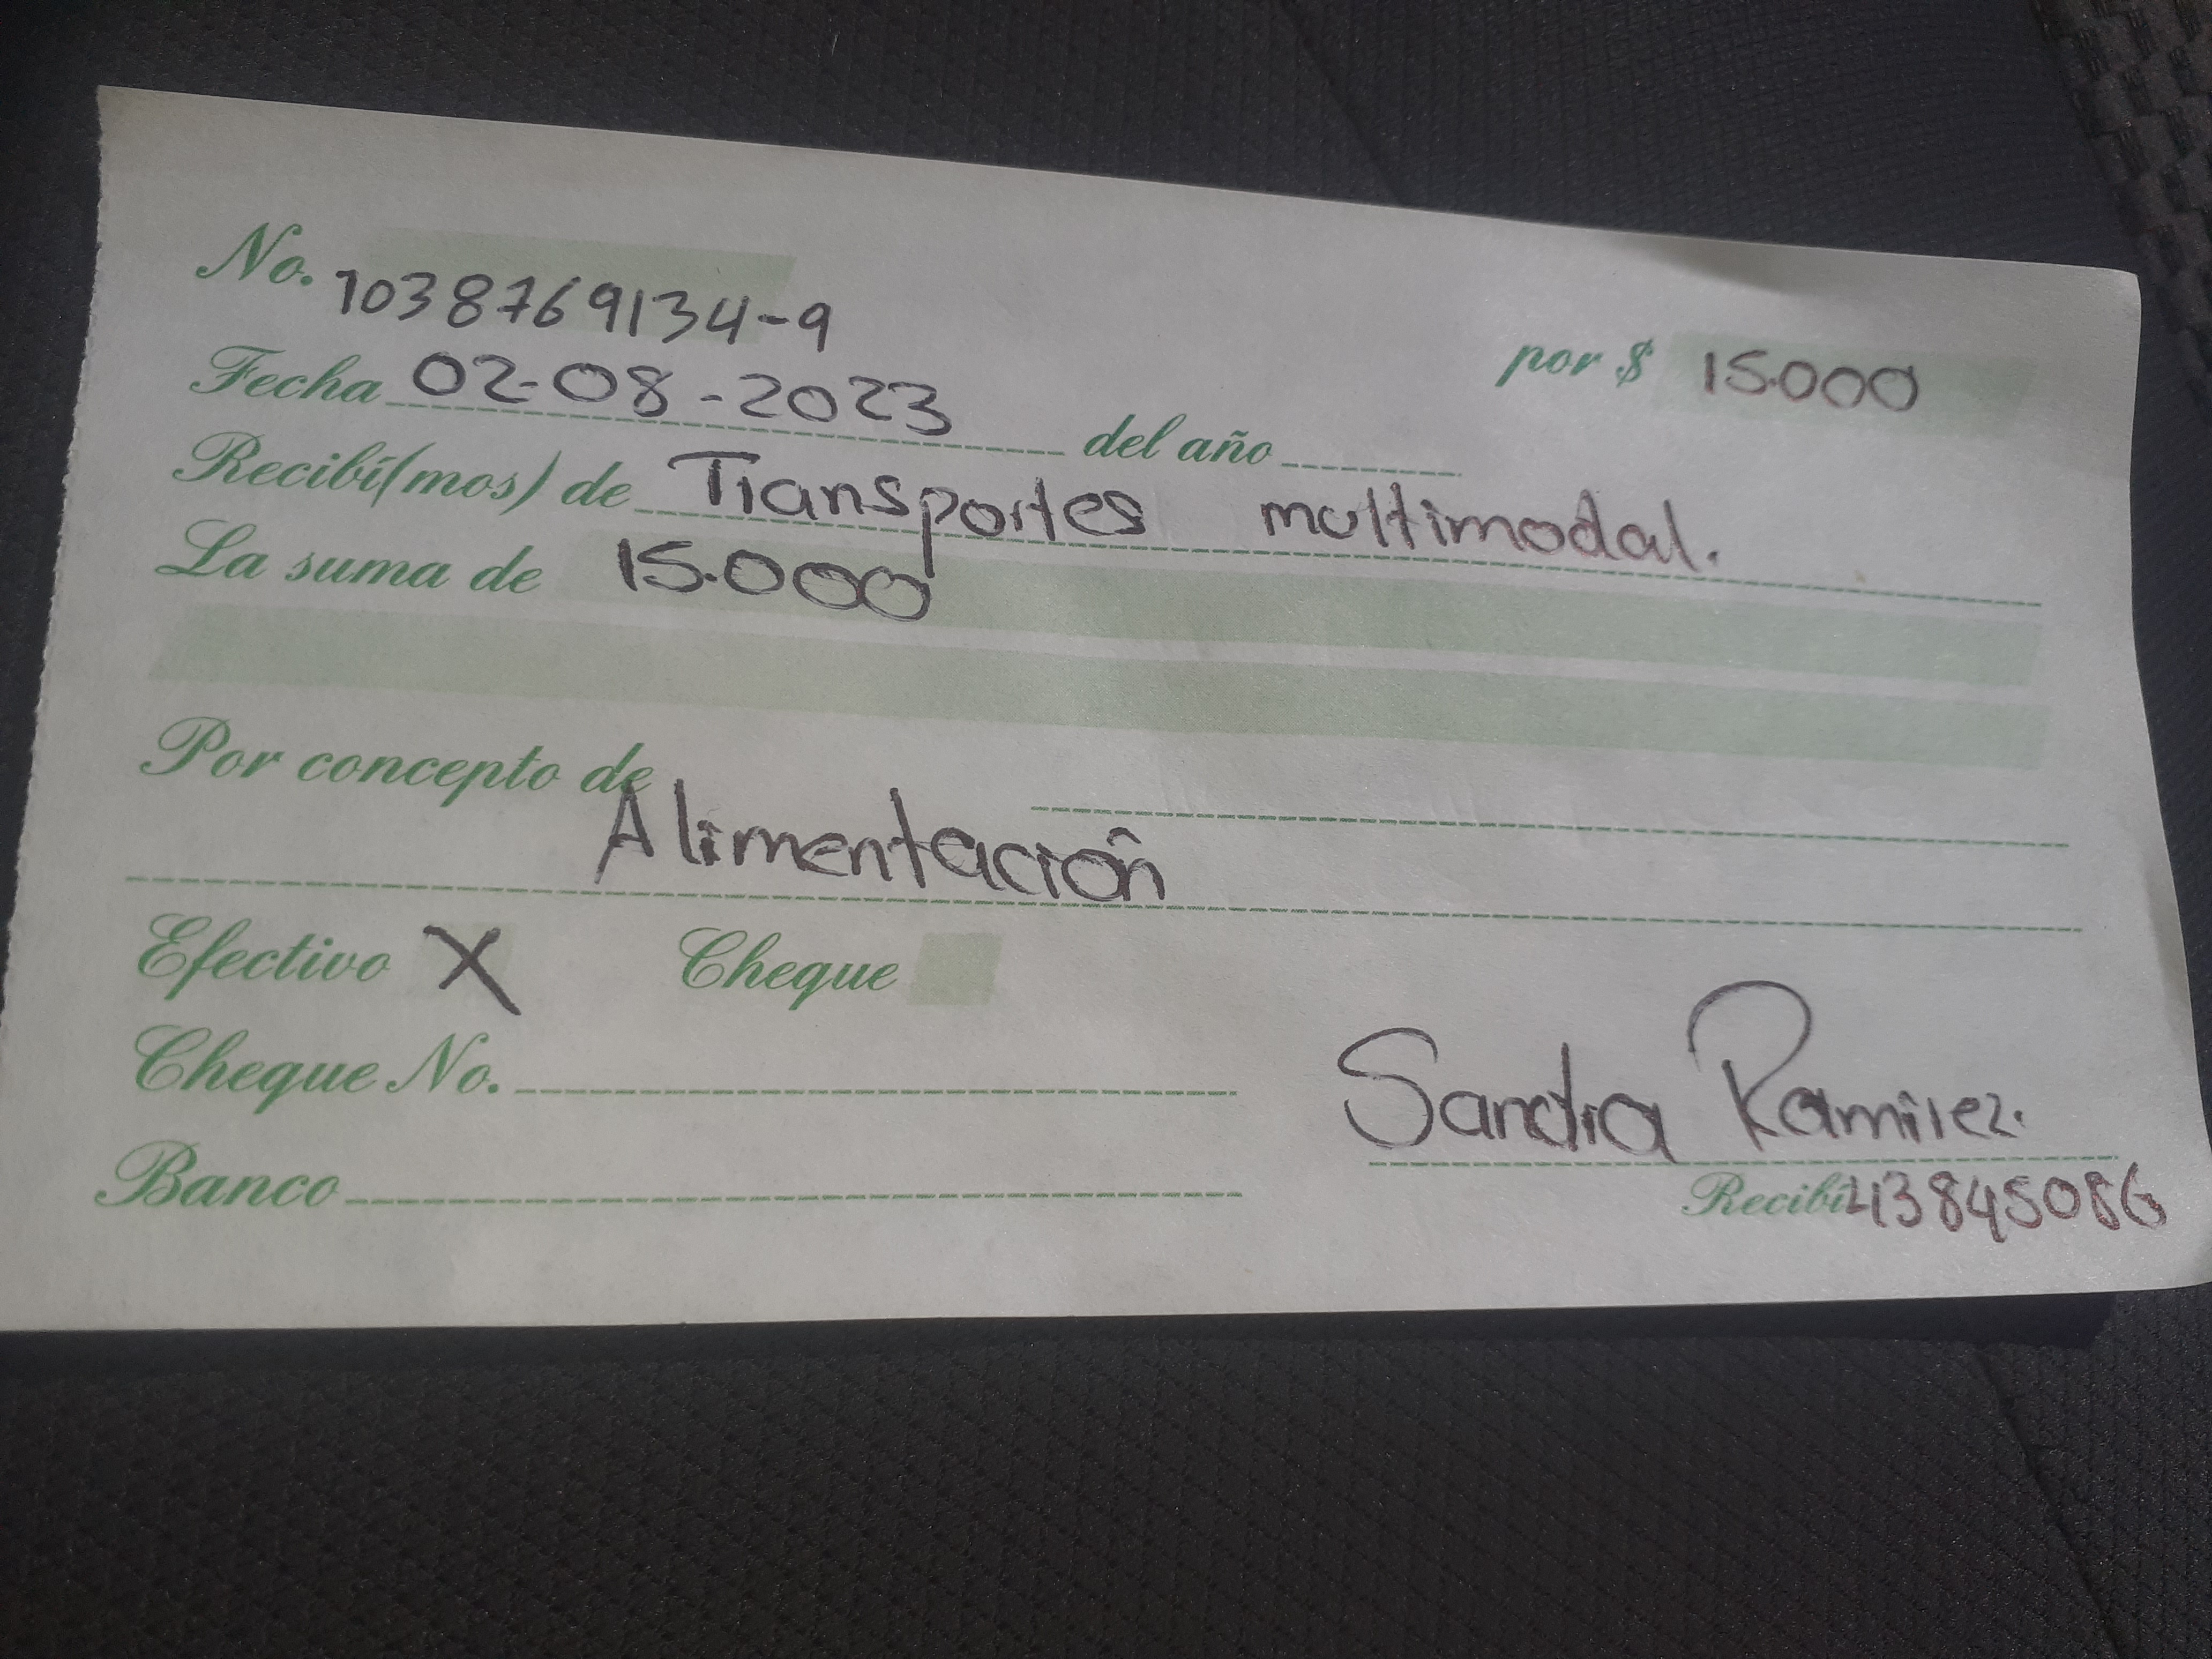 No. 1038769134-9
por $ 15.000
Fecha 02-08-2023 del año
Recibí(mos) de Transportes multimodal.
La suma de 15.000
Por concepto de
Alimentación
Efectivo X Cheque
Cheque No.
Sandra Ramirez.
Banco
Recibí 43845086